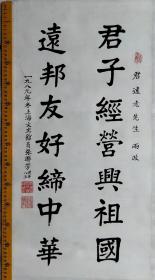 君遠老先生雨政
君子經營興祖國
遠邦友好締中華
一九八九年冬上海文史館員張聯芳